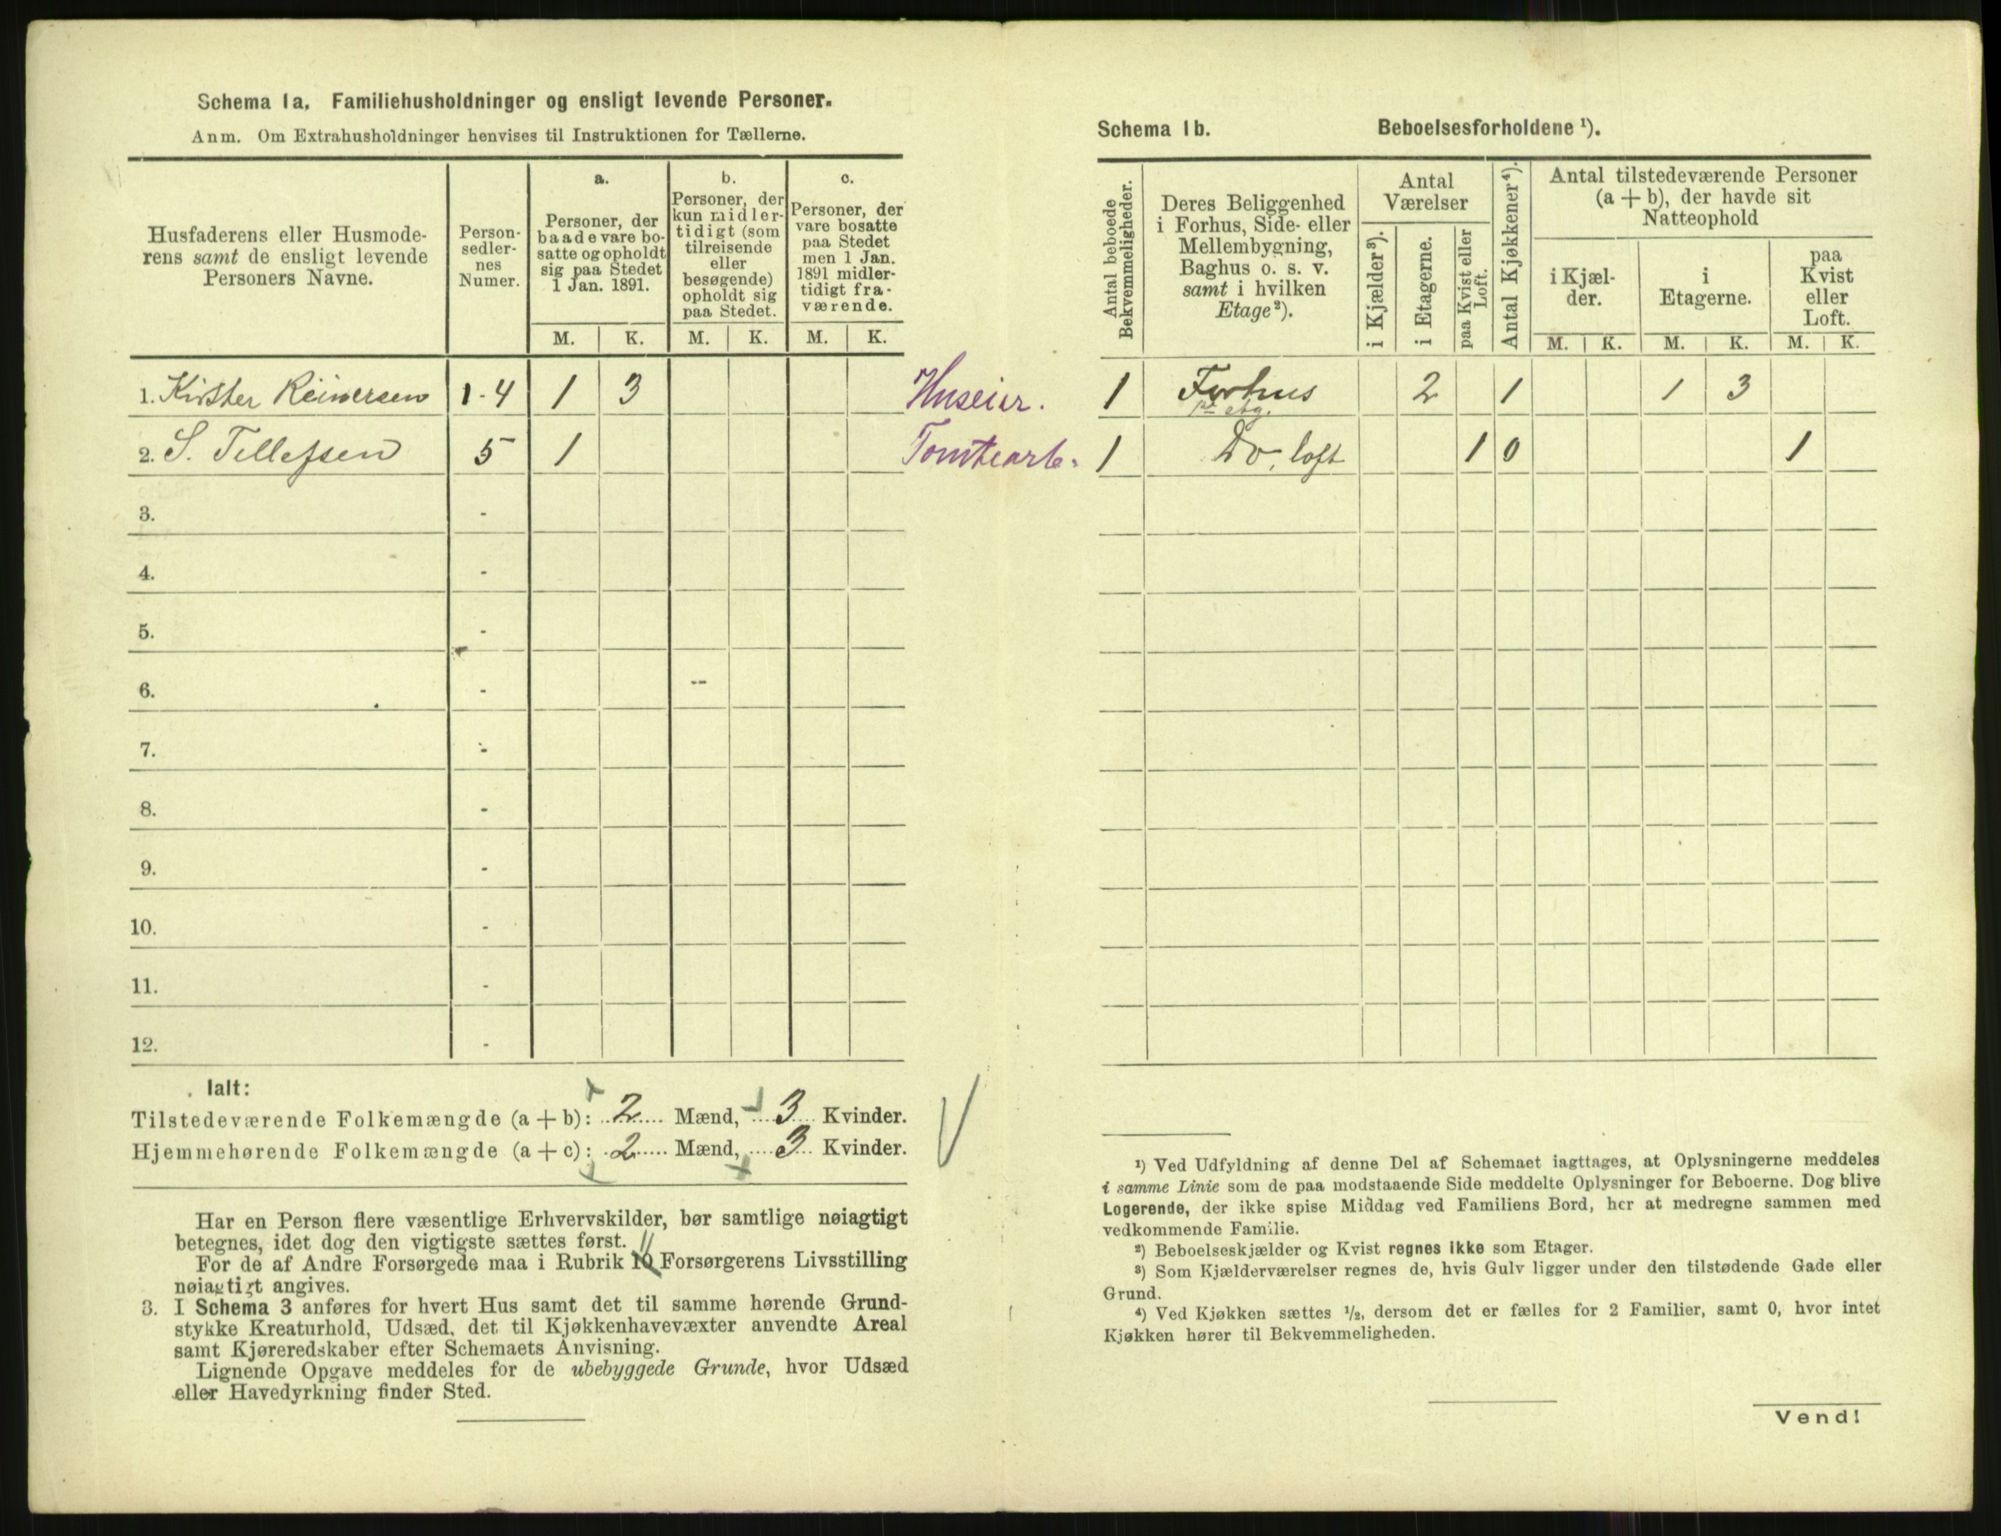 Schema 1a. Familiehusholdninger og ensligt levende Personer.
Anm. Om Extrahusholdninger henvises til Instruktionen for Tællerne.
Husfaderens eller Husmode-
rens samt de ensligt levende
Personers Navne.
Person-
sedler-
nes
Numer.
a.
Personer, der
baade vare bo-
satte og opholdt
sig paa Stedet
1 Jan. 1891.
b.
Personer, der
kun midler-
tidigt (som
tilreisende
eller
besøgende)
opholdt sig
paa Stedet.
c.
Personer, der
vare bosatte
paa Stedet
men 1 Jan.
1891 midler-
tidigt fra-
værende.
M. K. M. K. M. K.
1. Kirsther Reinersen 1-4 1 3 Huseier.
2. S. Tellefsen 5 1 Tomtearb.
3. -
4. -
5. -
6. - --
7. -
8. -
9. -
10. -
11. -
12. -
Ialt:
Tilstedeværende Folkemængde (a + b): 2 Mænd, 3 Kvinder.
Hjemmehørende Folkemængde (a + c): 2 Mænd, 3 Kvinder.
Har en Person flere væsentlige Erhvervskilder, bør samtlige nøiagtigt
betegnes, idet dog den vigtigste sættes først.
11
For de af Andre Forsørgede maa i Rubrik 10 Forsørgerens Livsstilling
nøiagtigt angives.
3. I Schema 3 anføres for hvert Hus samt det til samme hørende Grund-
stykke Kreaturhold, Udsæd, det til Kjøkkenhavevæxter anvendte Areal
samt Kjøreredskaber efter Schemaets Anvisning.
Lignende Opgave meddeles for de ubebyggede Grunde, hvor Udsæd
eller Havedyrkning finder Sted.
Schema 1b. Beboelsesforholdene ¹).
Antal beboede
Bekvemmeligheder.
Deres Beliggenhed
i Forhus, Side- eller
Mellembygning,
Baghus o. s. v.
samt i hvilken
Etage²).
Antal
Værelser
i Kjælder³).
i Etagerne.
paa Kvist eller
Loft.
Antal Kjøkkener⁴).
Antal tilstedeværende Personer
(a + b), der havde sit
Natteophold
i Kjæl-
der.
i
Etagerne.
paa
Kvist
eller
Loft.
M. K. M. K. M. K.
1 Forhus 2 1 1 3
1ste etg.
1 Do, loft 1 0 1
¹) Ved Udfyldning af denne Del af Schemaet iagttages, at Oplysningerne meddeles
i samme Linie som de paa modstaaende Side meddelte Oplysninger for Beboerne. Dog blive
Logerende, der ikke spise Middag ved Familiens Bord, her at medregne sammen med
vedkommende Familie.
²) Beboelseskjælder og Kvist regnes ikke som Etager.
³) Som Kjælderværelser regnes de, hvis Gulv ligger under den tilstødende Gade eller
Grund.
⁴) Ved Kjøkken sættes ½, dersom det er fælles for 2 Familier, samt 0, hvor intet
Kjøkken hører til Bekvemmeligheden.
Vend!